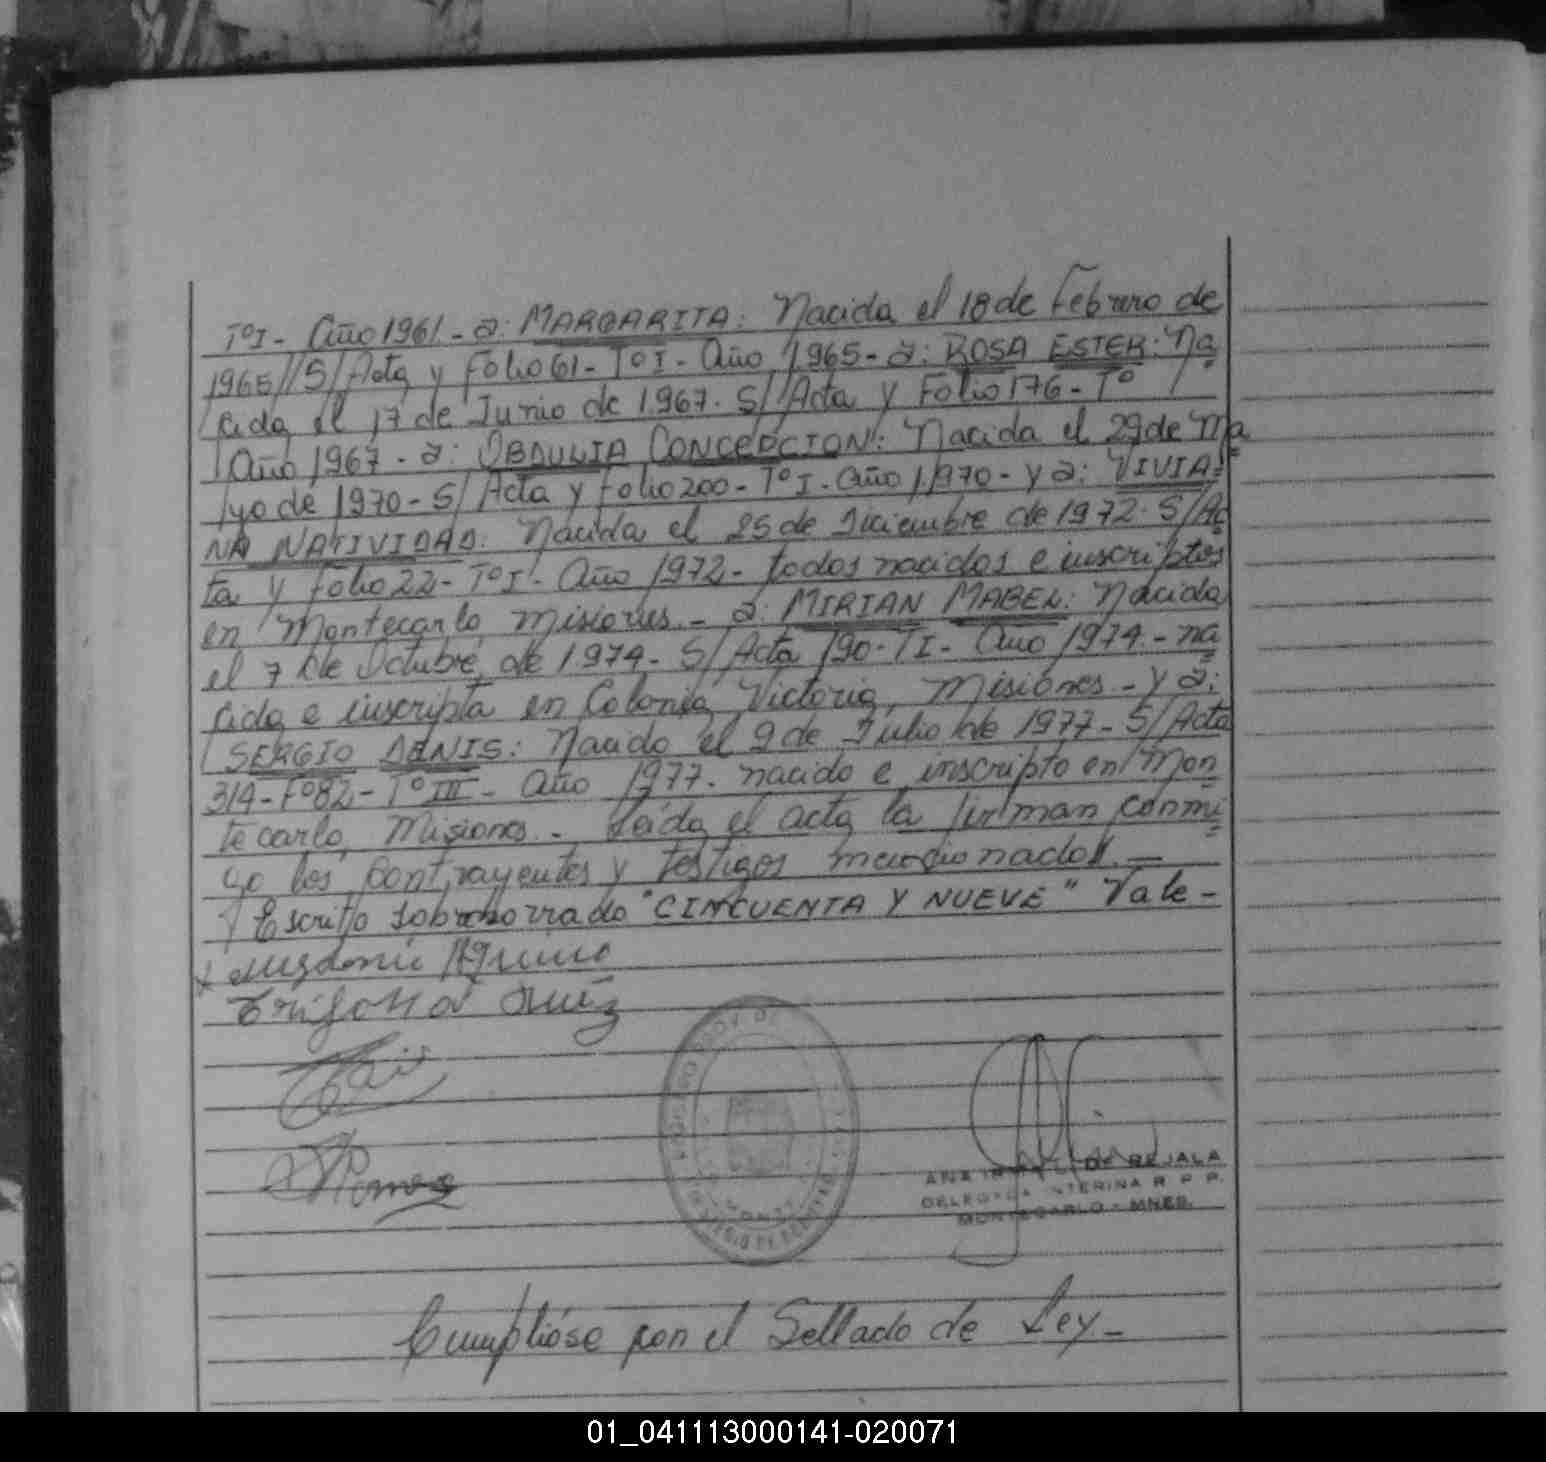 TºI- Año 1961 - a: MARGARITA: Nacida el 18 de Febrero de
1965//S/Acta y Folio 61- TºI- Año 1965- a: ROSA ESTER: Na
cida el 17 de Junio de 1.967. S/ Acta y Folio 176- Tº I
Año 1967 - a: OBDULIA CONCEPCION: Nacida el 29 de Ma
yo de 1970- S/ Acta y folio 200- TºI- Año 1.970- y a: VIVIA
NA NATIVIDAD: Nacida el 25 de Diciembre de 1972- S/Ac
ta y folio 22- TºI- Año 1972- todos nacidos e inscriptos
en Montecarlo Misiones.- a: MIRIAN MABEL: Nacida
el 7 de Octubre de 1.974- S/ Acta 190- TI- Año 1974.- na
cida e inscripta en Colonia Victoria, Misiones - y a:
SERGIO DENIS: Nacido el 9 de Julio de 1977- S/ Acta
314- Fº82- TºIII- Año 1977. nacido e inscripto en Mon
tecarlo, Misiones - Leida el acta la firman conmi
go los contrayentes y testigos mencionados.—
Escrito sobreborrado "CINCUENTA Y NUEVE" Vale-
Aquino
Trifona Ruiz
MONTECARLO - MNES.
Cumplióse con el Sellado de Ley-
01_041113000141-020071